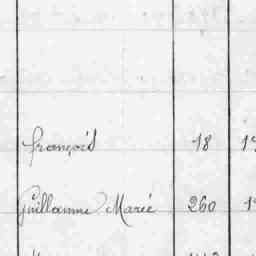 françois 18
Guillaume Marie 260